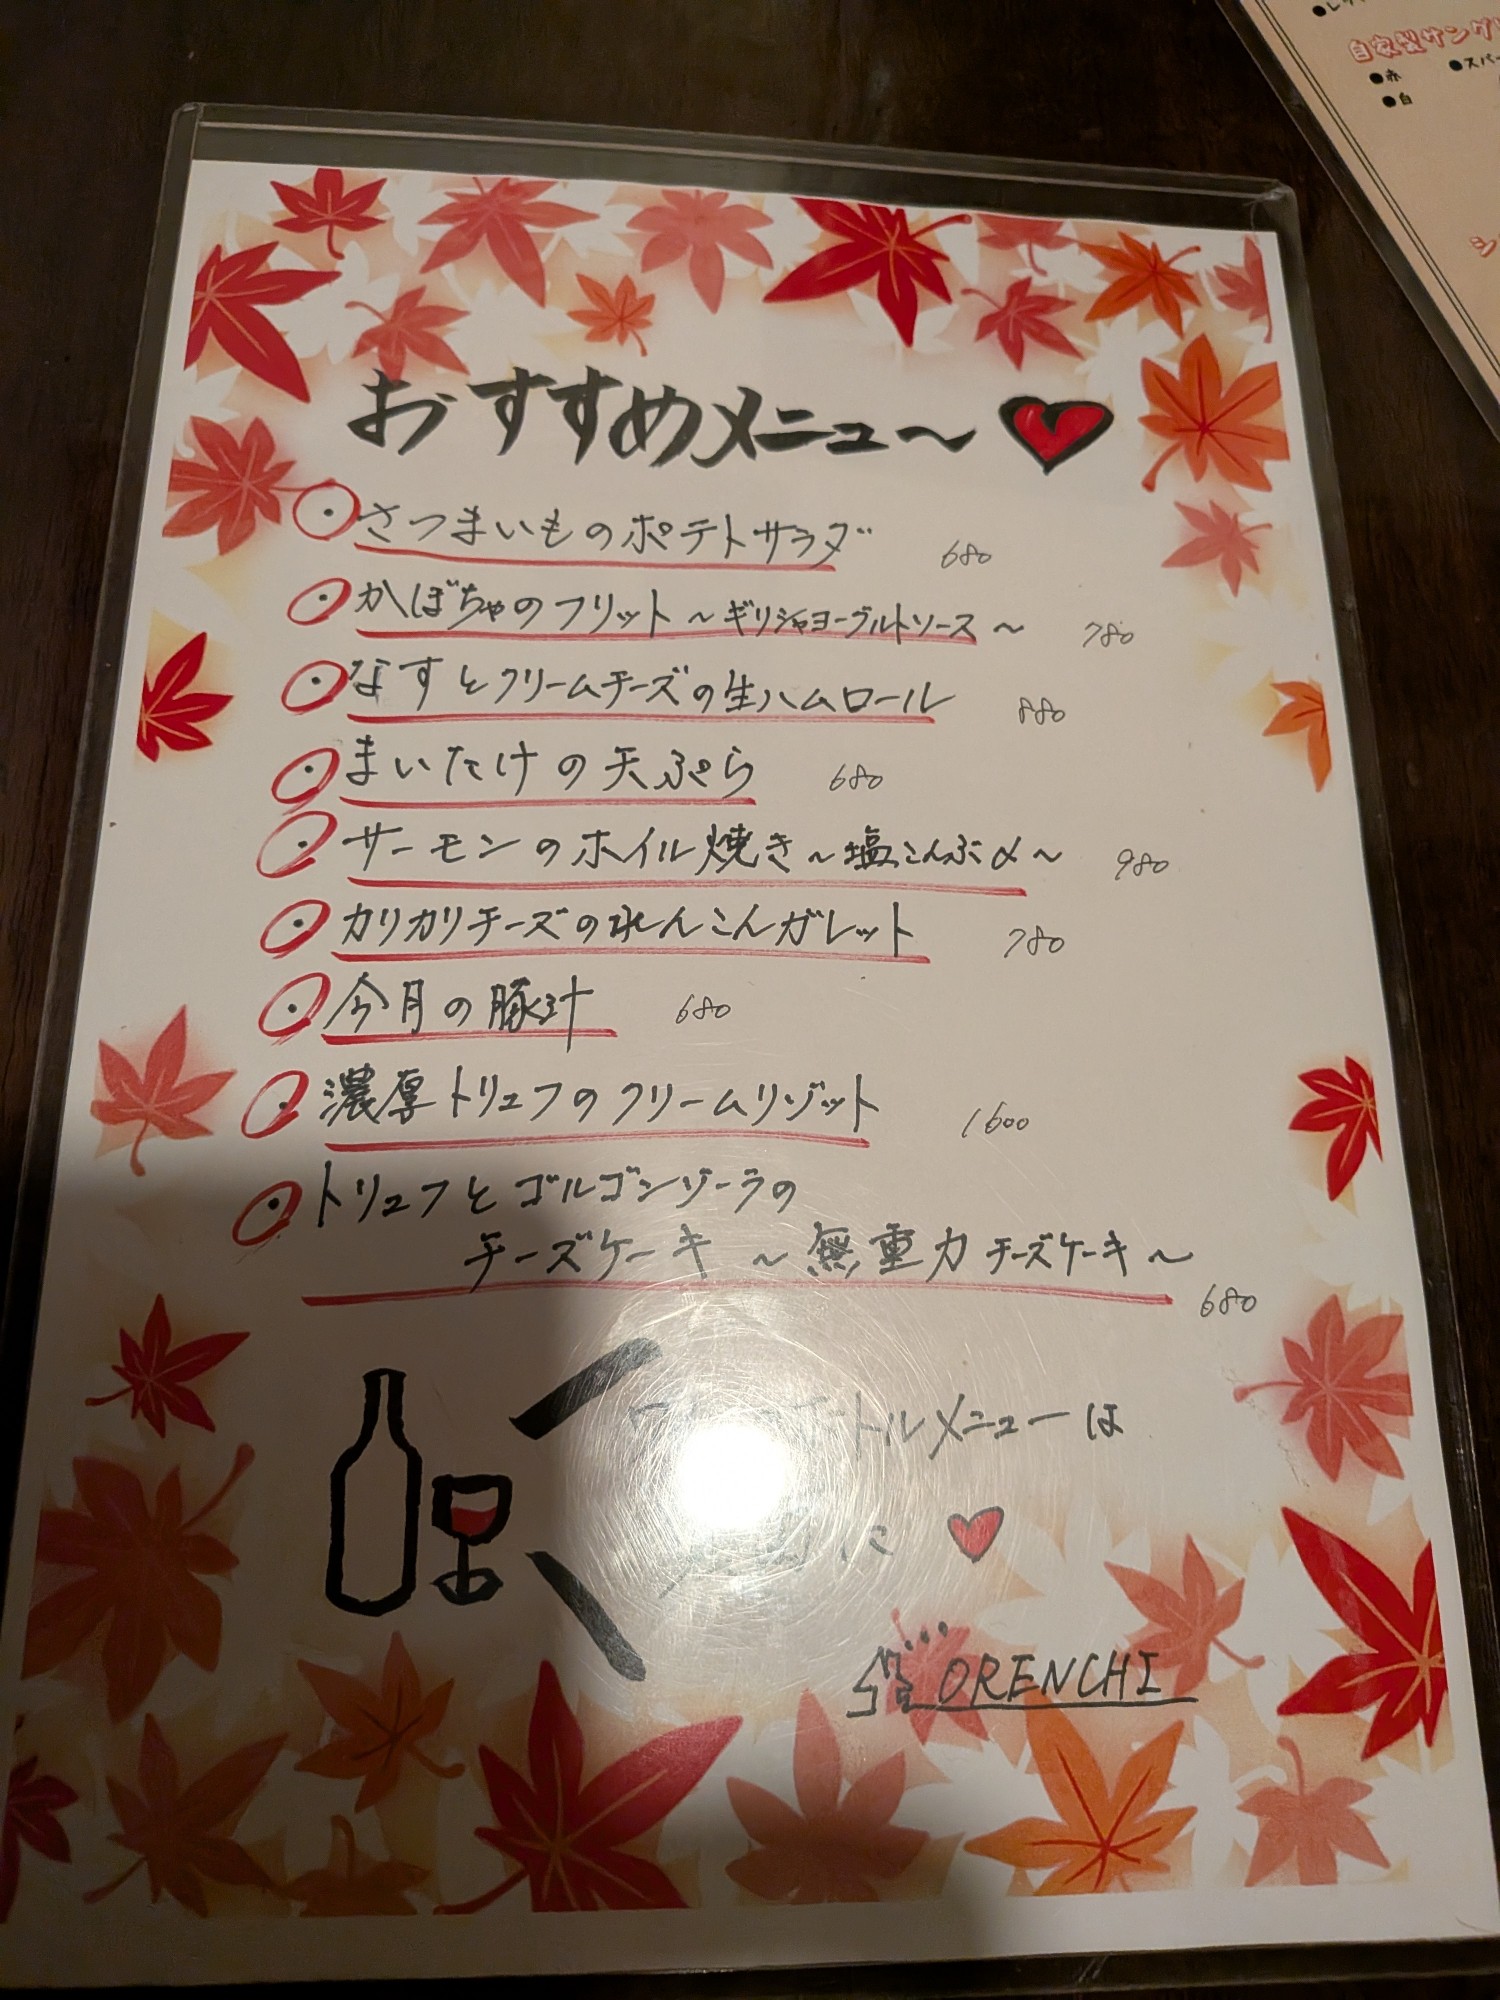 おすすめメニュー
・さつまいものポテトサラダ 680
・かぼちゃのフリット～ギリシャヨーグルトソース～ 780
・なすとクリームチーズの生ハムロール 880
・まいたけの天ぷら 680
・サーモンのホイル焼き～塩こんぶ〆～ 980
・カリカリチーズのれんこんガレット 780
・今月の豚汁 680
・濃厚トリュフのクリームリゾット 1600
・トリュフとゴルゴンゾーラの
チーズケーキ ～無重力チーズケーキ～
680
トルメニューは
に
ORENCHI
自家製サング
●赤 ●スパー
●白